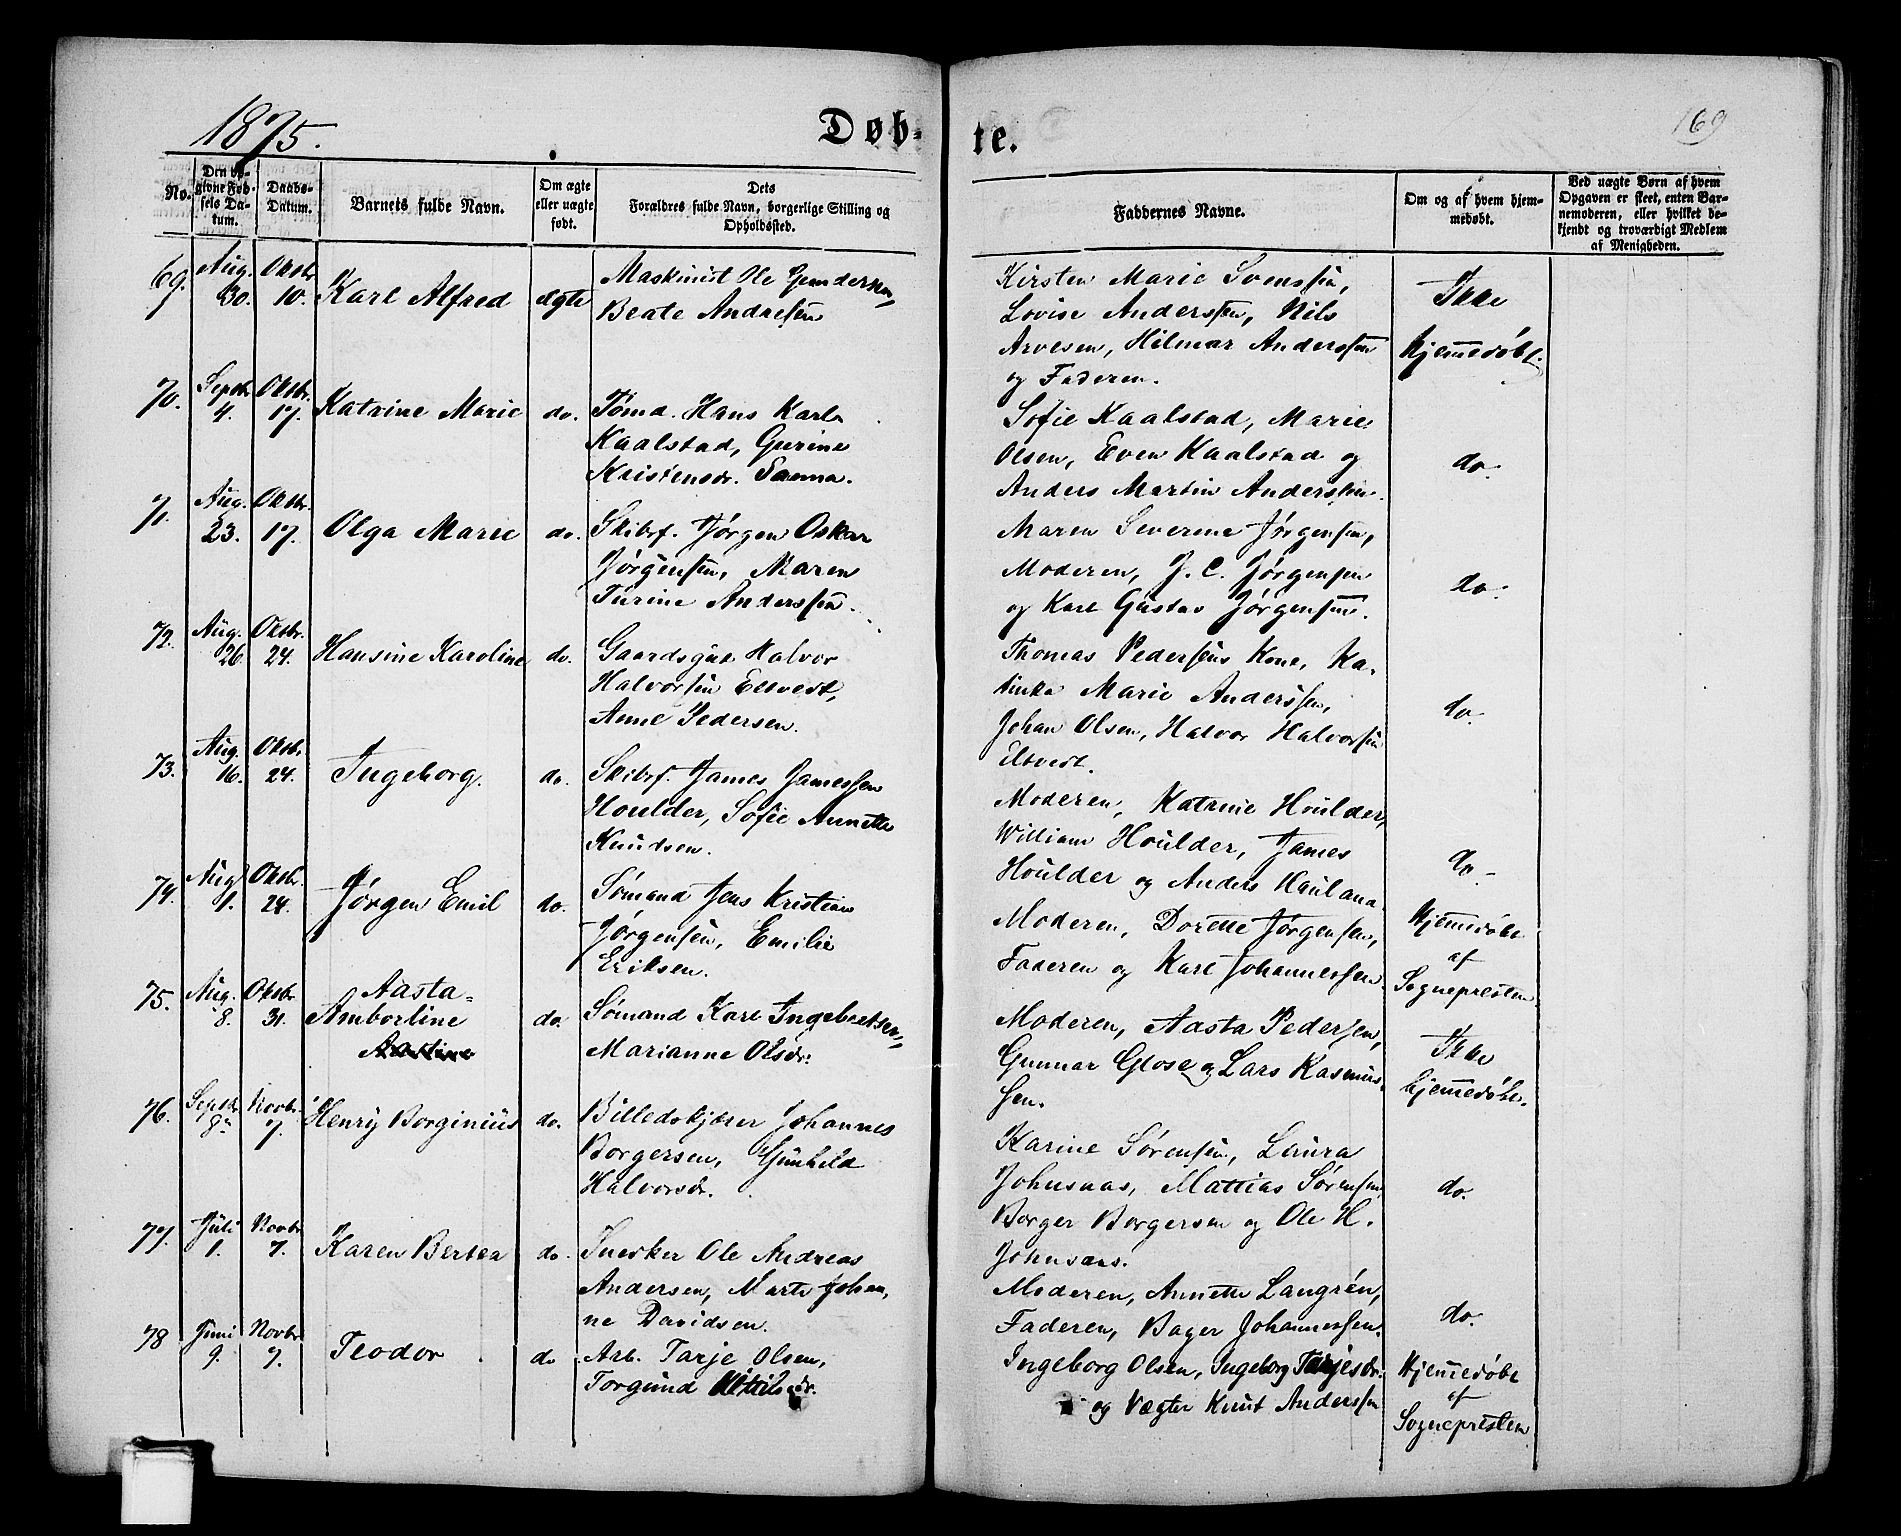 1875.
Døbte.
169
No.
Den opgivne Fødsels Datum.
Daabs-Datum.
Barnets fulde Navn.
Om ægte eller uægte født.
Dets Forældres fulde Navn, borgerlige Stilling og Opholdssted.
Faddernes Navne.
Om og af hvem hjemmedøbt.
Ved uægte Børn af hvem Opgaven er skeet, enten Barnemoderen, eller hvilket bekjendt og troværdigt Medlem af Menigheden.
69. Aug. 30. Oktbr. 10. Karl Alfred ægte
Maskinist Ole Gunderssen,
Beate Andresen
Kirsten Marie Svenssen,
Lovise Anderssen, Nils
Arvesen, Hilmar Anderssen
og Faderen.
Ikke
hjemmedøbt.
70. Septbr. 4. Oktbr. 17. Katrine Marie do.
Tømd. Hans Karl
Kaalstad, Gurine
Kristensdr. Sanna.
Sofie Kaalstad, Marie
Olsen, Even Kaalstad og
Anders Martin Anderssen.
do.
71. Aug. 23. Oktbr. 17. Olga Marie do.
Skibsf. Jørgen Oskar
Jørgensen, Maren
Turine Anderssen.
Maren Severine Jørgensen,
Moderen, J. C. Jørgensen
og Karl Gustav Jørgensen.
do.
72. Aug. 26. Oktbr. 24. Hansine Karoline do.
Gaardsgut Halvor
Halvorsen Eltvedt,
Anne Pedersen.
Thomas Pedersens Kone, Ka-
tinka Marie Anderssen,
Johan Olsen, Halvor Halvorsen
Eltvedt.
do.
73. Aug. 16. Oktbr. 24. Ingeborg. do.
Skibsf. James Jamessen
Houlder, Sofie Annette
Knudsen.
Moderen, Katrine Houlder,
William Houlder, James
Houlder og Anders Haulana.
do.
74. Aug. 1. Oktbr. 24. Jørgen Emil do.
Sømand Jens Kristian
Jørgensen, Emilie
Eriksen.
Moderen, Dorette Jørgensen,
Faderen og Karl Johannessen.
Hjemmedøbt
af
Sognepresten
75. Aug. 8. Oktbr. 31. Aasta-
Amborline
Aastine
do.
Sømand Karl Ingebretsen,
Marianne Olsdr.
Moderen, Aasta Pedersen,
Gunnar Glose og Lars Rasmus-
sen.
Ikke
hjemmedøbt.
76. Septbr. 8de Novbr. 7. Henry Borginius do.
Billedskjærer Johannes
Borgersen, Gunhild
Halvorsdr.
Karine Sørensen, Laura
Johnsnas, Mattias Sørensen
Borger Borgersen og Ole H.
Johnsaas.
do.
77. Juli 1. Novbr. 7. Karen Bertea do.
Snekker Ole Andreas
Andersen, Marte Johan-
ne Davidsen.
Moderen, Annette Langrén,
Faderen, Bager Johannessen.
do.
78 Juni 9. Novbr. 7. Teodor do
Arb. Tarje Olsen,
Torgund Kittilsdr.
Ingeborg Olsen, Ingeborg Tarjesdr.
og Vægter Knut Anderssen
Hjemmedøbt
af
Sognepresten